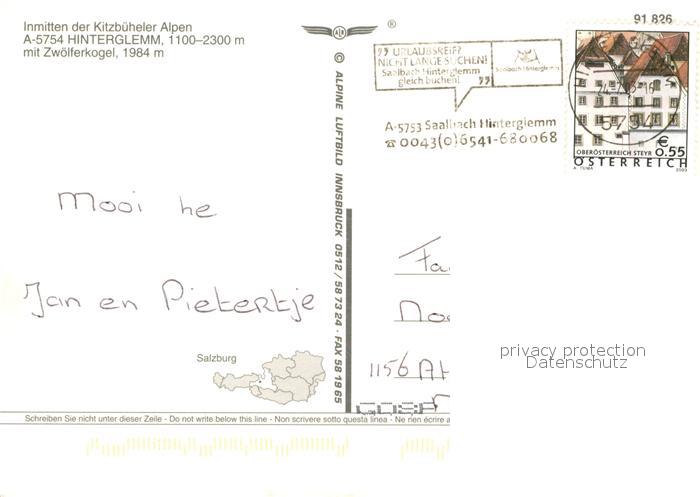 91 826
Inmitten der Kitzbüheler Alpen
A-5754 HINTERGLEMM, 1100–2300 m
mit Zwölferkogel, 1984 m
®
© ALPINE LUFTBILD INNSBRUCK 0512 / 58 73 24 · FAX 58 19 65
"URLAUBSREIF?
NICHT LANGE SUCHEN!
Saalbach Hinterglemm
gleich buchen!"
Saalbach Hinterglemm
A-5753 Saalbach Hinterglemm
☎ 0043(0)6541-680068
5754
OBERÖSTERREICH STEYR
€ 0.55
ÖSTERREICH
A. TUMA 2003
Mooi he
Jan en Pietertje
Fa
1156 AH
privacy protection
Datenschutz
Salzburg
Schreiben Sie nicht unter dieser Zeile - Do not write below this line - Non scrivere sotto questa linea - Ne rien écrire a